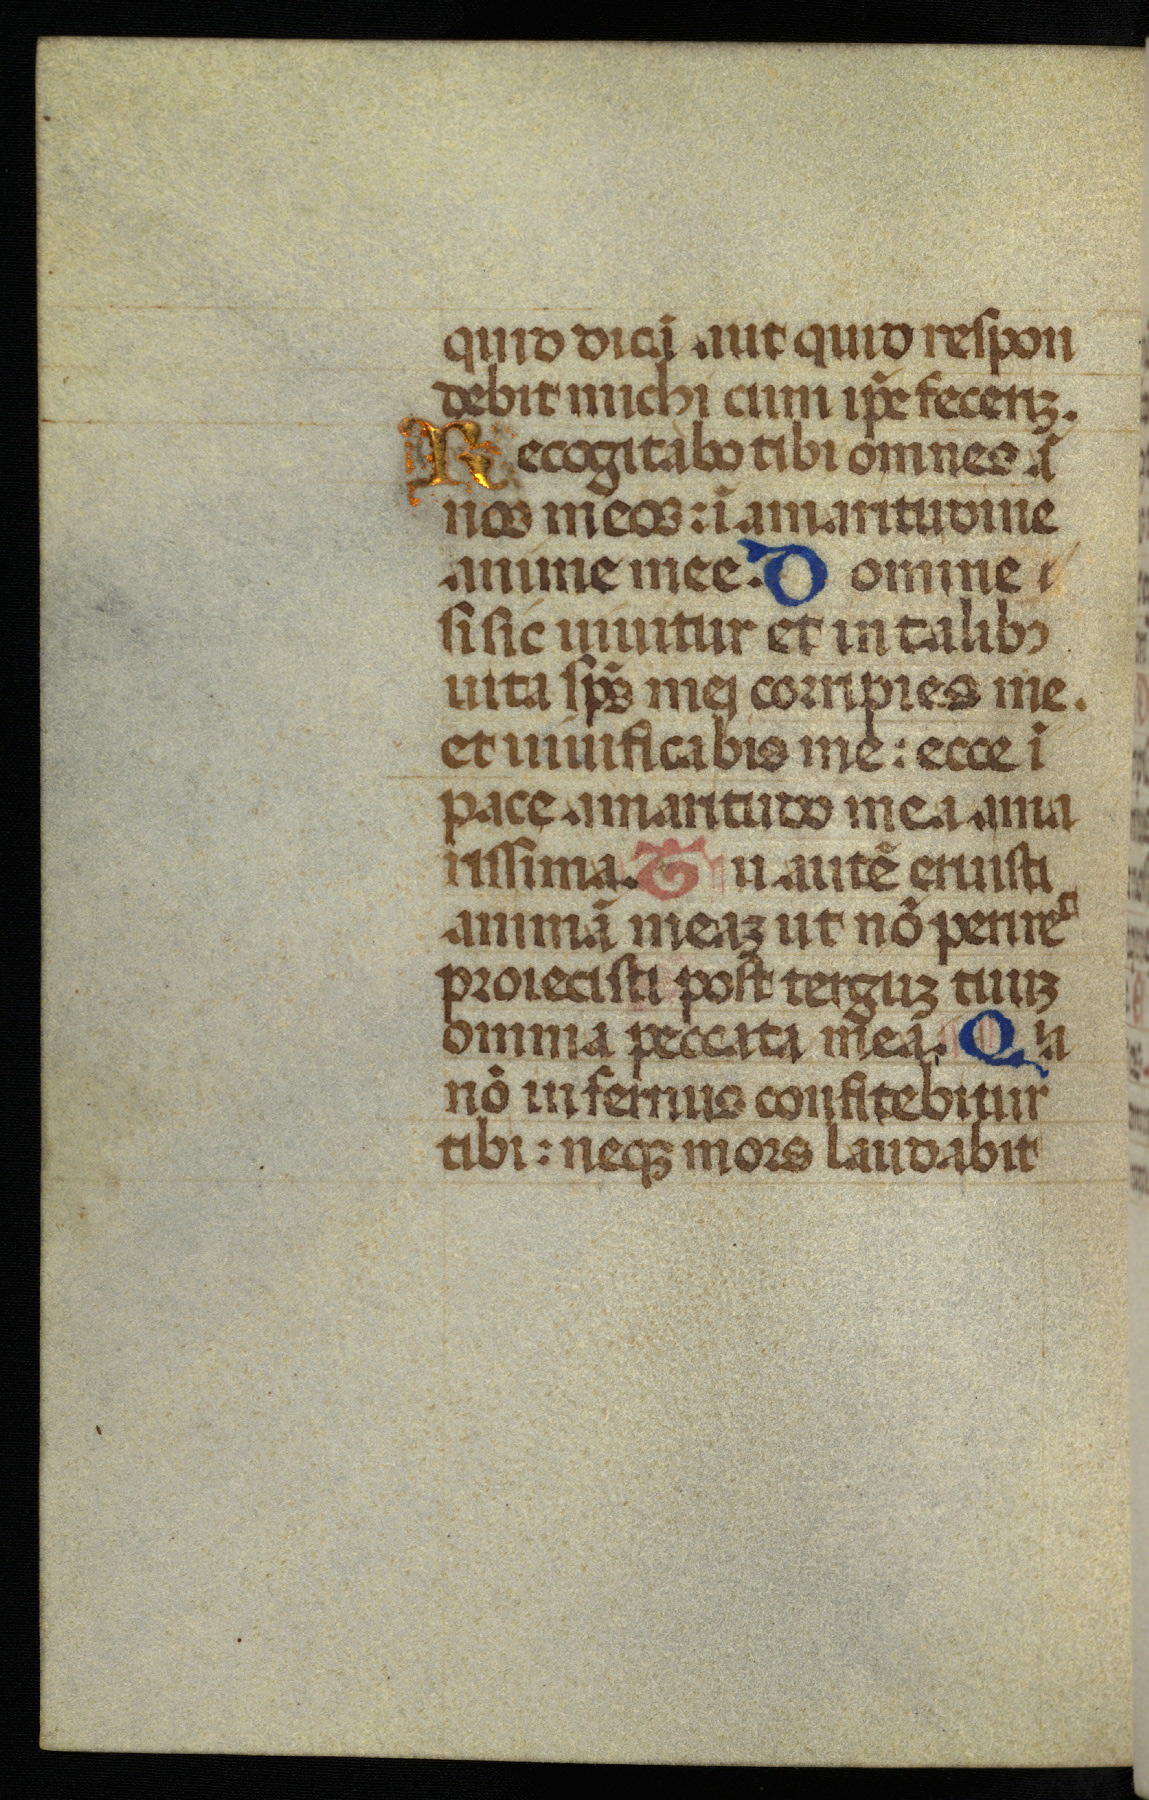 quid dicā aut quid respon
debit michi cum ip̄e fecerꝫ.
Recogitabo tibi omnes ā
nos meos: ī amaritudine
anime mee. Domine
si sic uiuitur et in talibꝰ
uita sp̄s mei corripies me.
et uiuificabis me: ecce ī
pace amaritudo mea ama
rissima. Tu autē eruisti
animā meaꝫ ut nō periret
proiecisti post terguꝫ tuuꝫ
omnia peccata mea. Qīa
nō infernus confitebitur
tibi: neqꝫ mors laudabit